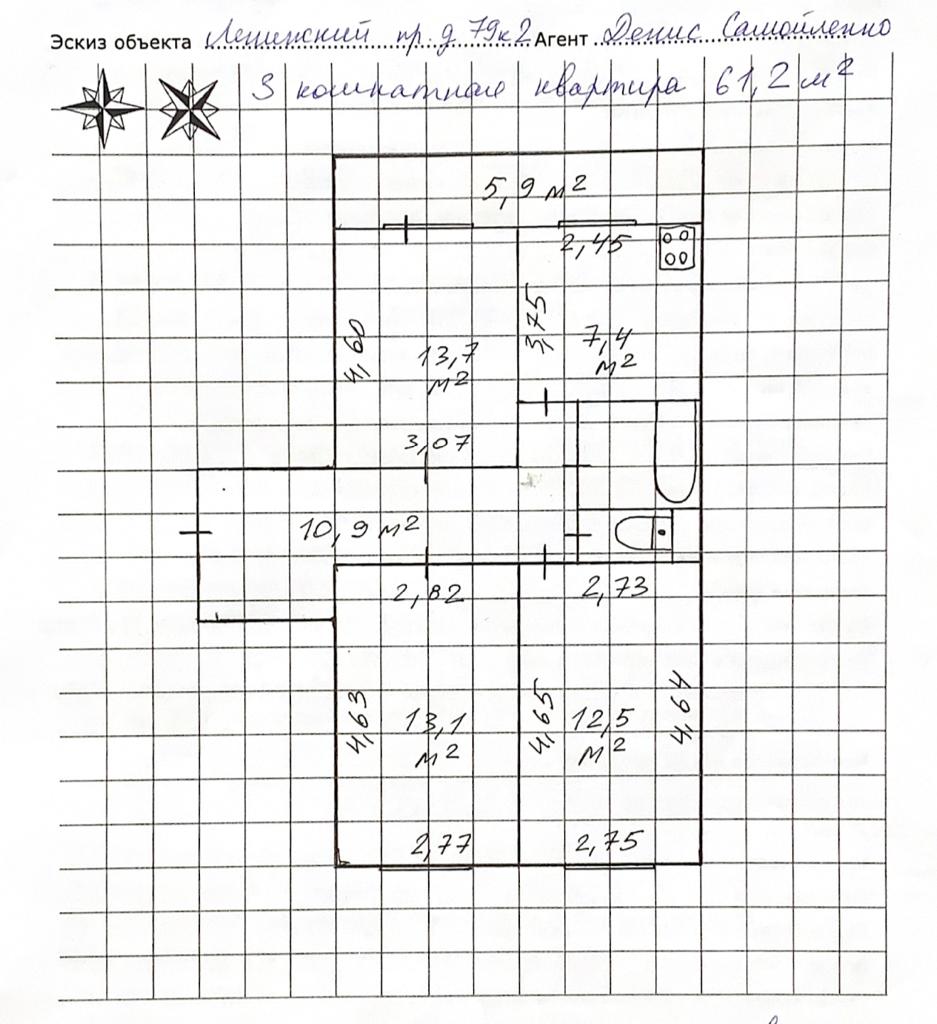 Эскиз объекта Ленинский пр. д 79к2 Агент Денис Самойленко
3 комнатная квартира 61,2 м²
5,9 м²
2,45
4,60
13,7
м²
3,75
7,4
м²
3,07
10,9 м²
2,82
2,73
4,63
13,1
м²
4,65
12,5
м²
4,64
2,77
2,75